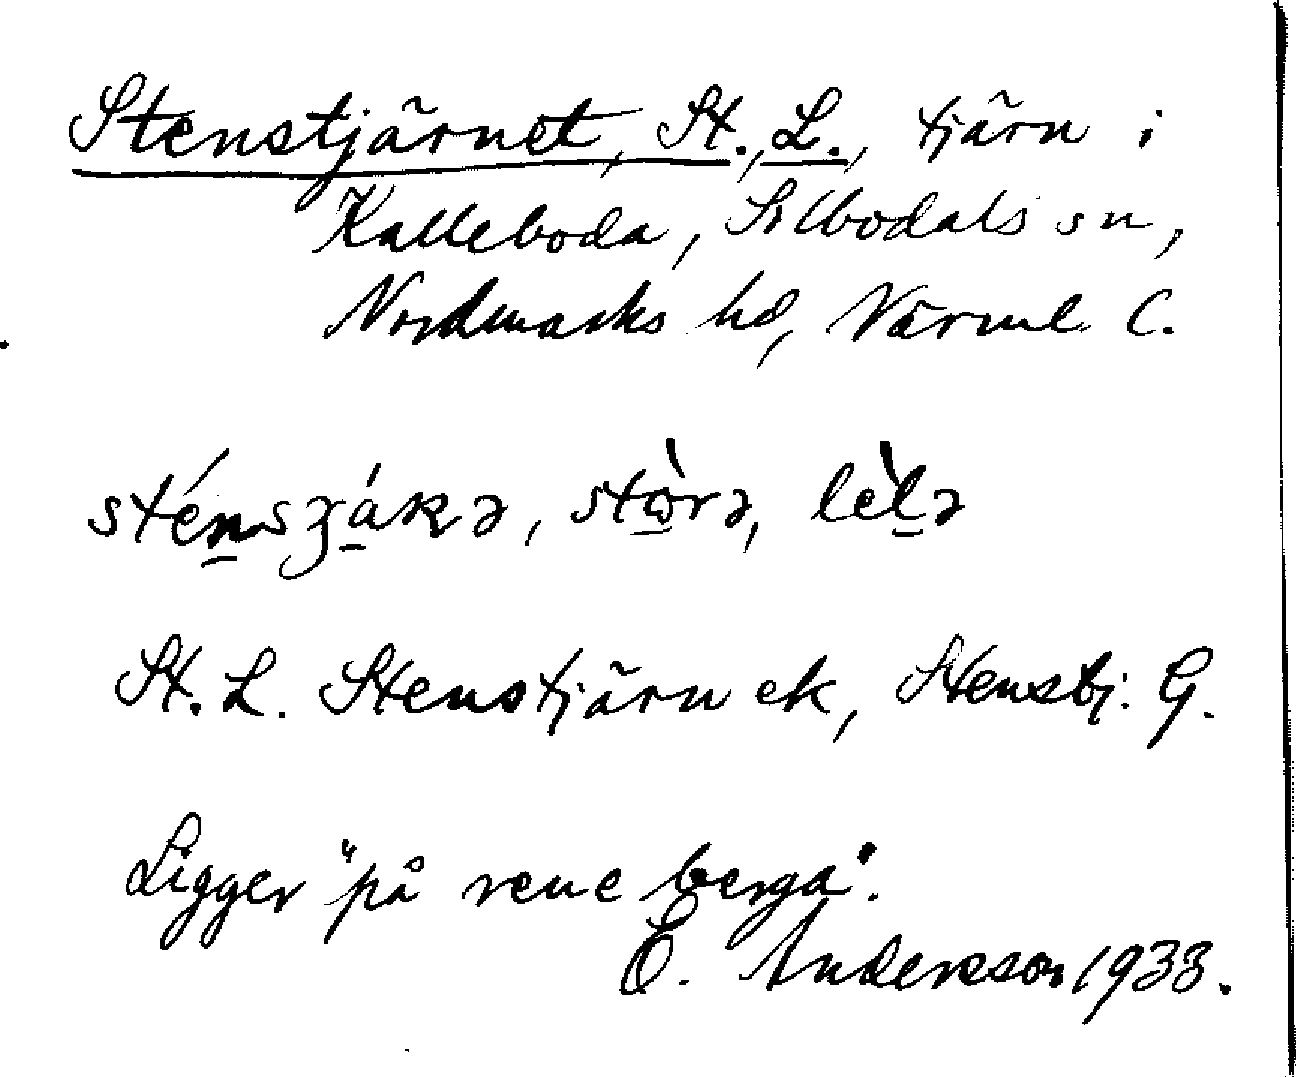 Stenstjärnet, St., L., tjärn i
Kalleboda, Silbodals sn,
Nordmarks hd, Värml C.
sténsʒákə, stòrə, lèlə
St. L. Stenstjärn ek, Stenstj. G.
Ligger "på rene berga".
E. Andersson 1933.